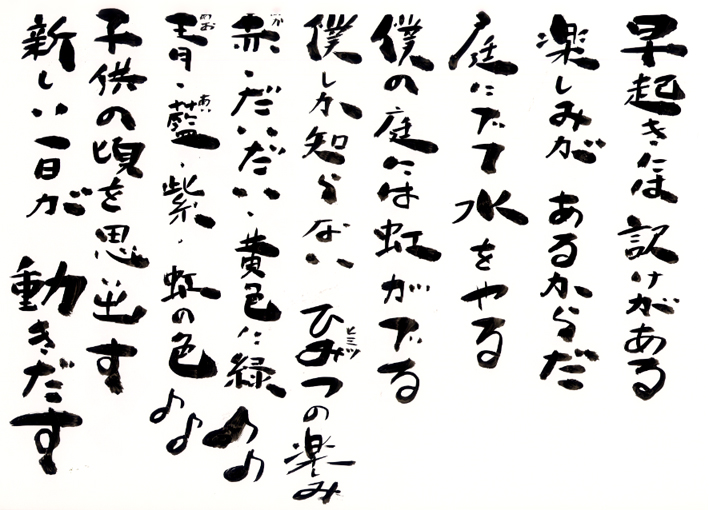 早起きには訳けがある
楽しみが あるからだ
庭にでて水をやる
僕の庭には虹がでる
僕しか知らない ひみつの楽しみ
赤・だいだい・黄色に緑♪♪
青・藍・紫・虹の色♪♪
子供の頃を思い出す
新しい一日が 動きだす